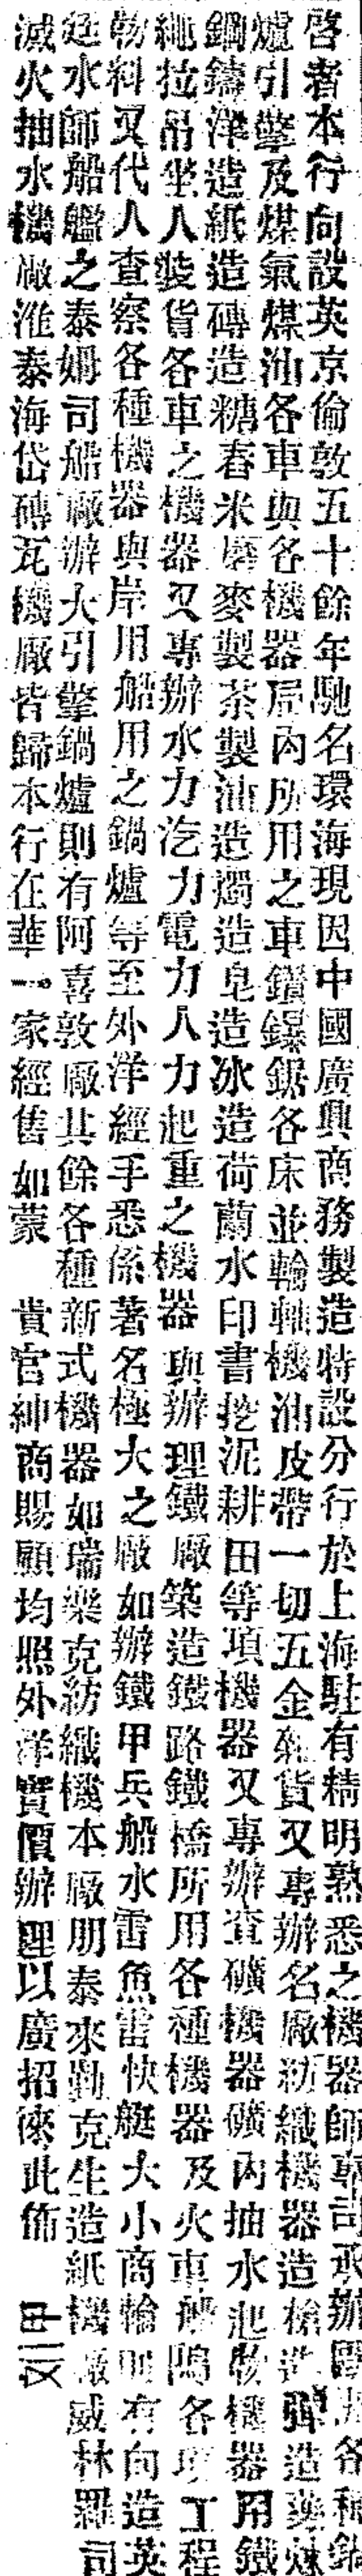 啓者本行向設英京倫敦五十餘年馳名環海現因中國廣興商務製造特設分行於上海駐有精明熟悉之機器師專司承辦各種鍋
爐引擎及煤氣煤油各車與各機器局內所用之車鑽鑤鋸各床並輪軸機油皮帶一切五金雜貨又專辦名廠紡織機器造槍造彈造藥煉
鋼鑄洋造紙造磚造糖舂米磨麥製茶製油造燭造皂造冰造荷蘭水印書挖泥耕田等項機器又專辦查礦機器礦內抽水起物機器用鐵
繩拉吊坐人裝貨各車之機器又專辦水力汽力電力人力起重之機器與辦理鐵廠築造鐵路鐵橋所用各種機器及火車各項工程
物料又代人查察各種機器與岸用船用之鍋爐等至外洋經手悉係著名極大之廠如辦鐵甲兵船水雷魚雷快艇大小商輪則有向造英
廷水師船艦之泰姆司船廠辦大引擎鍋爐則有阿喜敦廠其餘各種新式機器如瑞樂克紡織機本廠朋泰來勤克生造紙機廠威林羅司
滅火抽水機廠淮泰海岱磚瓦機廠皆歸本行在華一家經售如蒙 貴官紳商賜顧均照外洋實價辦理以廣招徠此佈